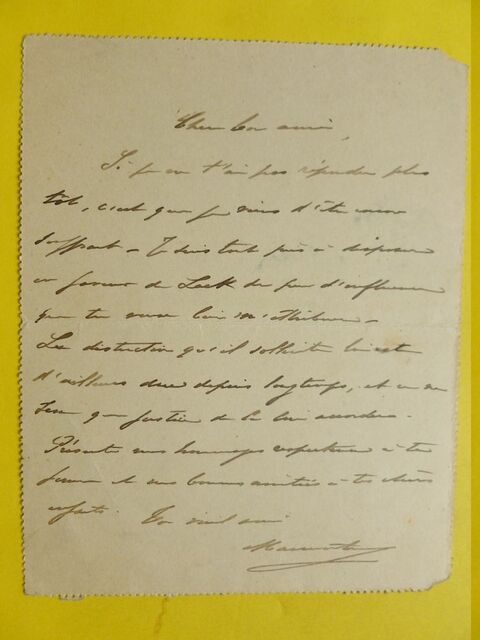 Cher bon ami,
Si je ne t'ai pas répondu plus
tôt, c'est que je viens d'être encore
souffrant - Je suis tout prêt à disposer
en faveur de Lack du peu d'influence
que tu veux bien m'attribuer -
La distinction qu'il sollicite lui est
d'ailleurs due depuis longtemps, et ce ne
sera que justice de la lui accorder -
Présente mes hommages respectueux à ta
femme et mes bonnes amitiés à tes chers
enfants. Ton vieil ami